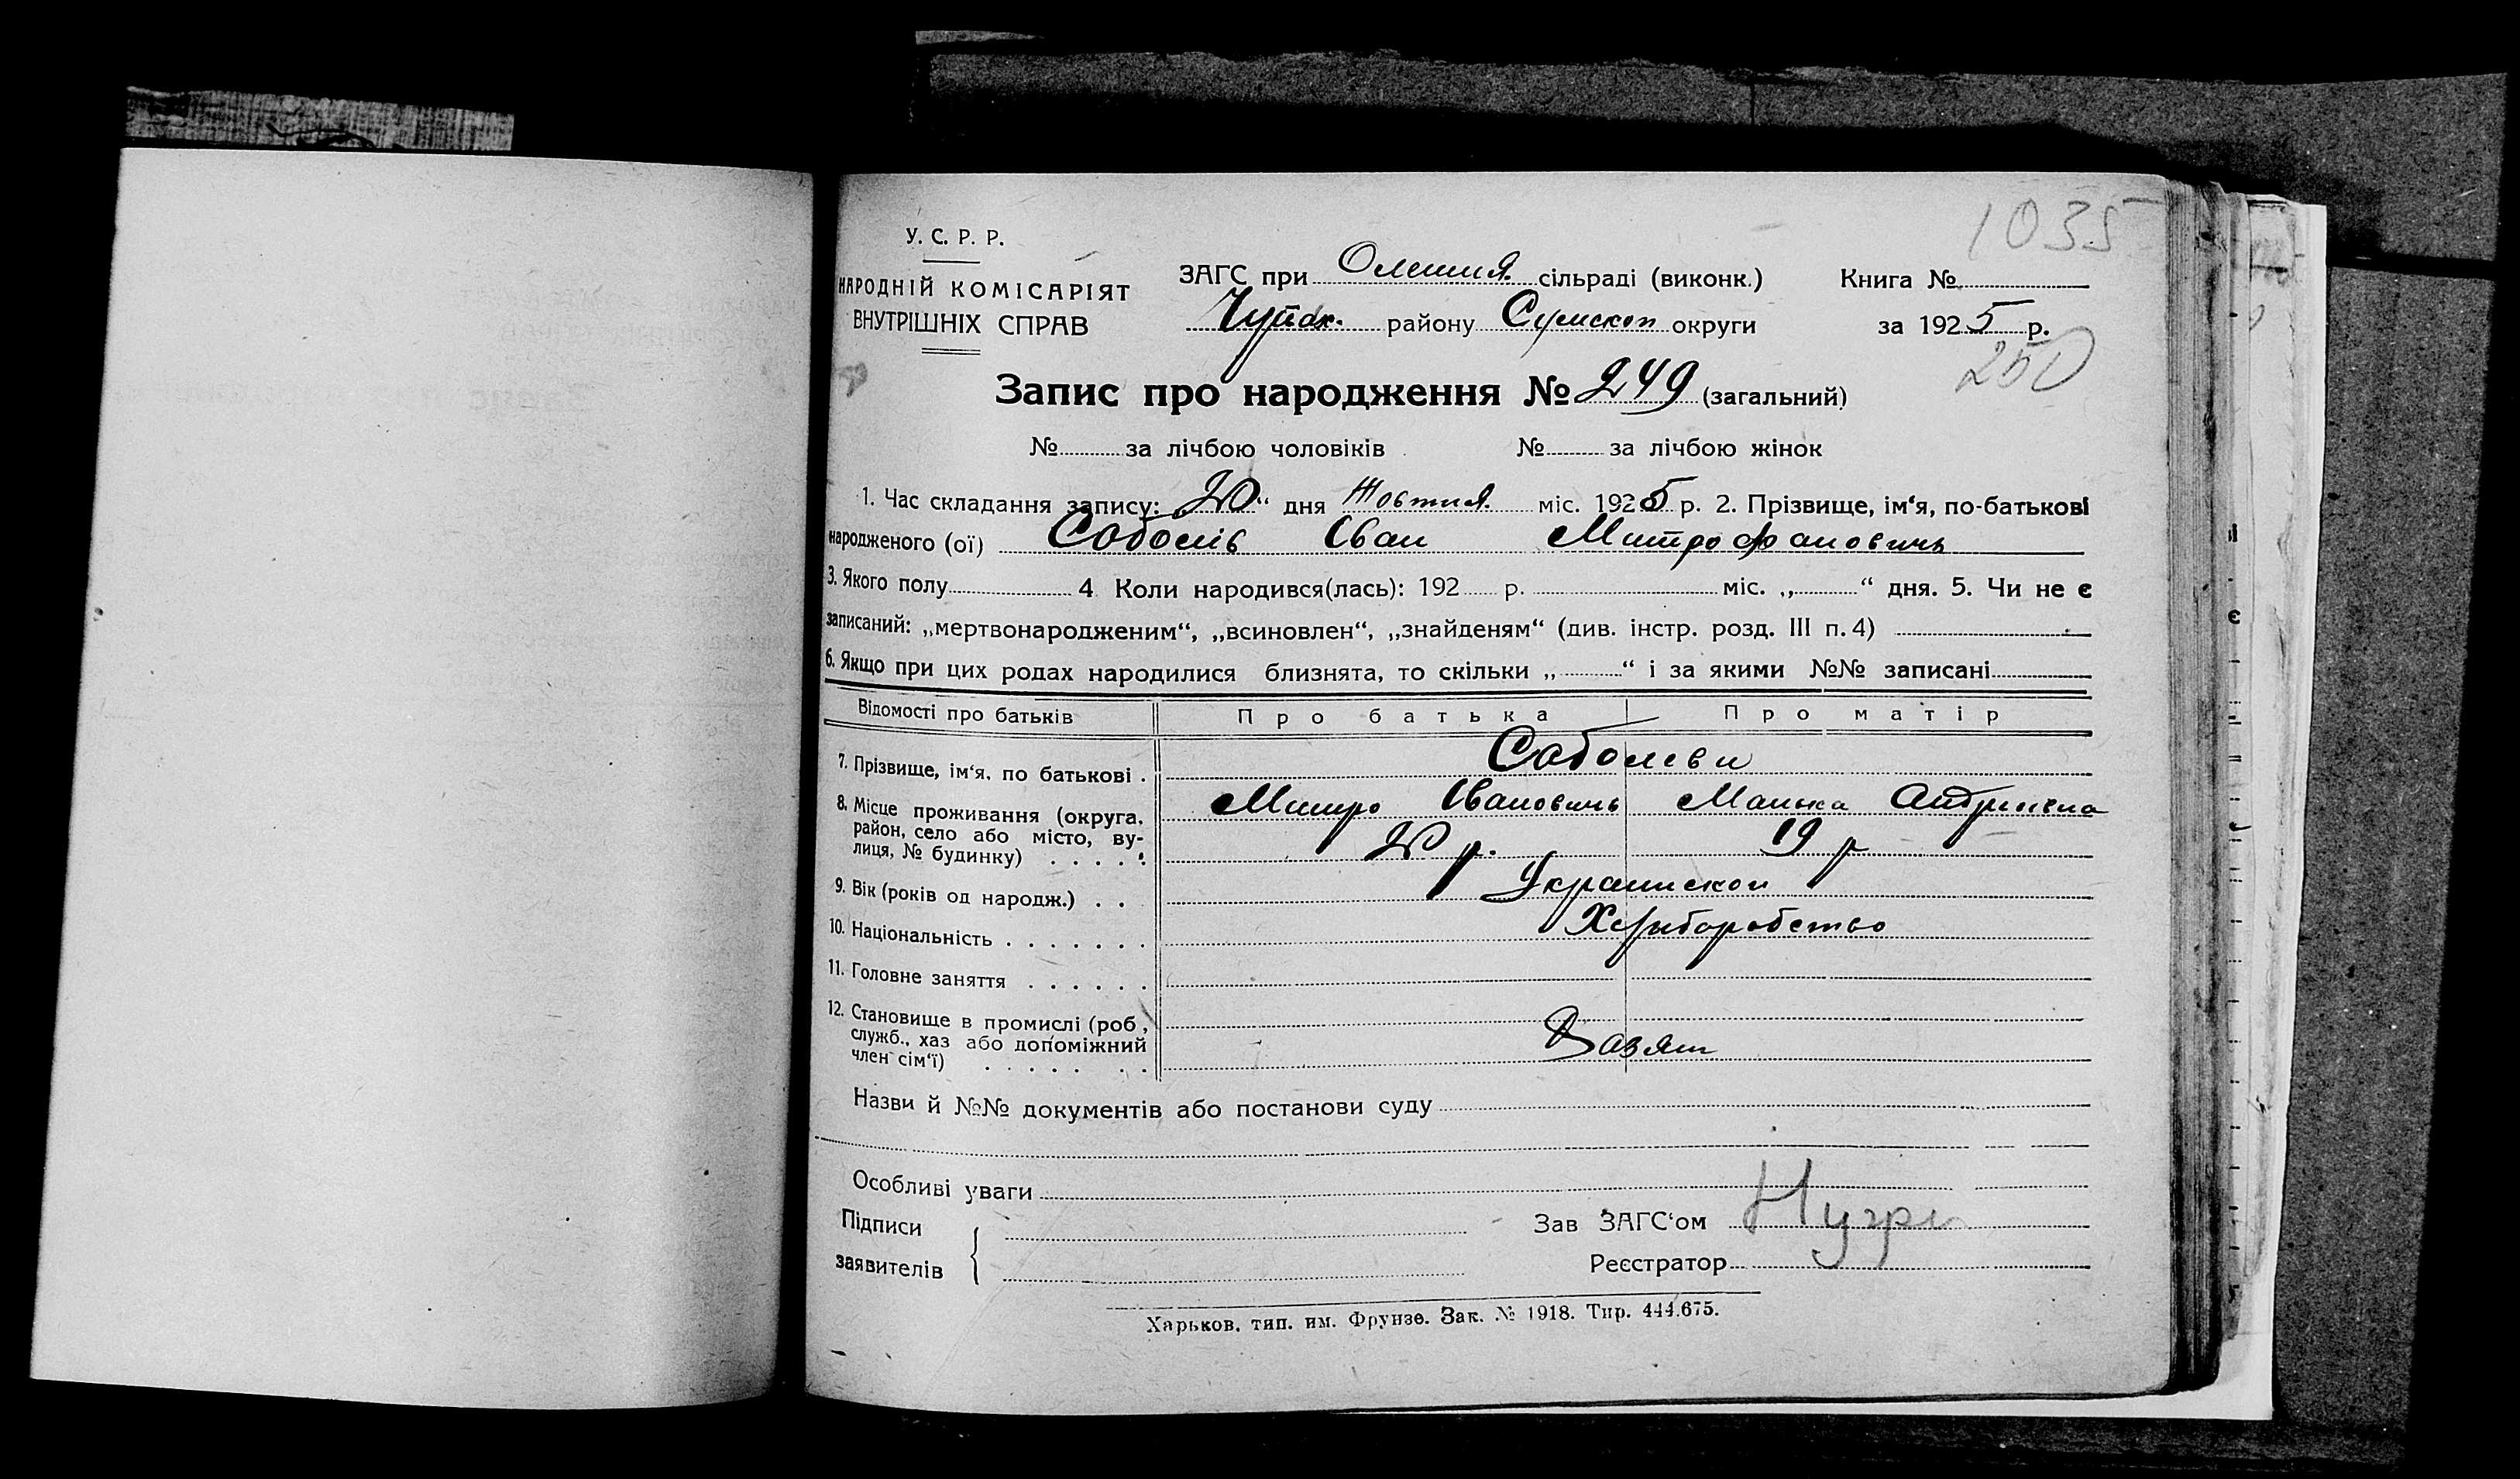 1035
У. С. Р. Р.
НАРОДНІЙ КОМІСАРІЯТ
ВНУТРІШНІХ СПРАВ
ЗАГС при Олешня. сільраді (виконк.) Книга №
Чупах. району Сумскоп округи за 1925 р.
250
Запис про народження № 249 (загальний)
№ за лічбою чоловіків № за лічбою жінок
1. Час складання запису: „20“ дня Жовтня. міс. 1925 р. 2. Прізвище, ім‘я, по-батькові
народженого (ої) Соболів Іван Митрофановичь
3. Якого полу 4 Коли народився(лась): 192 р. міс. „ “ дня. 5. Чи не є
записаний: „мертвонародженим“, „всиновлен“, „знайденям“ (див. інстр. розд. III п. 4)
6. Якщо при цих родах народилися близнята, то скільки „ “ і за якими №№ записані
Відомості про батьків Про батька Про матір
7. Прізвище, ім‘я, по батькові . Соболеви
8. Місце проживання (округа, Митро Івановичь
район, село або місто, ву-
лиця, № будинку) . . . . . 20 р. 19 р
9. Вік (років од народж.) . . Украинскои
10. Національність . . . . . . . Хлиборобство
11. Головне заняття . . . . . .
12. Становище в промислі (роб,
служб., хаз або допоміжний
член сім‘ї) . . . . . . .
Назви й №№ документів або постанови суду
Особливі уваги
Підписи
заявителів
Зав ЗАГС‘ом
Реєстратор
Харьков, тип. им. Фрунзе. Зак. № 1918. Тир. 444.675.